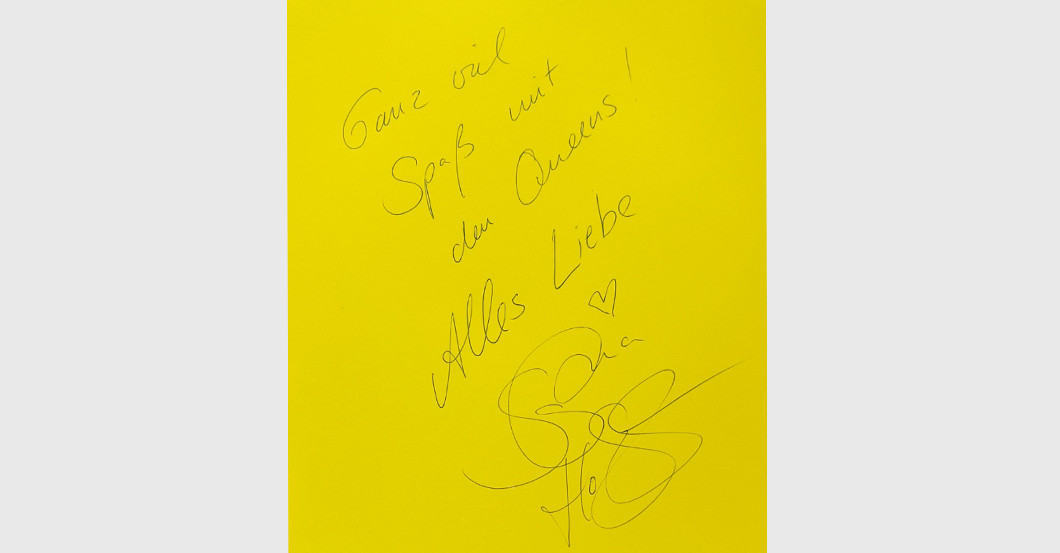 Ganz viel
Spaß mit
den Queens!
Alles Liebe